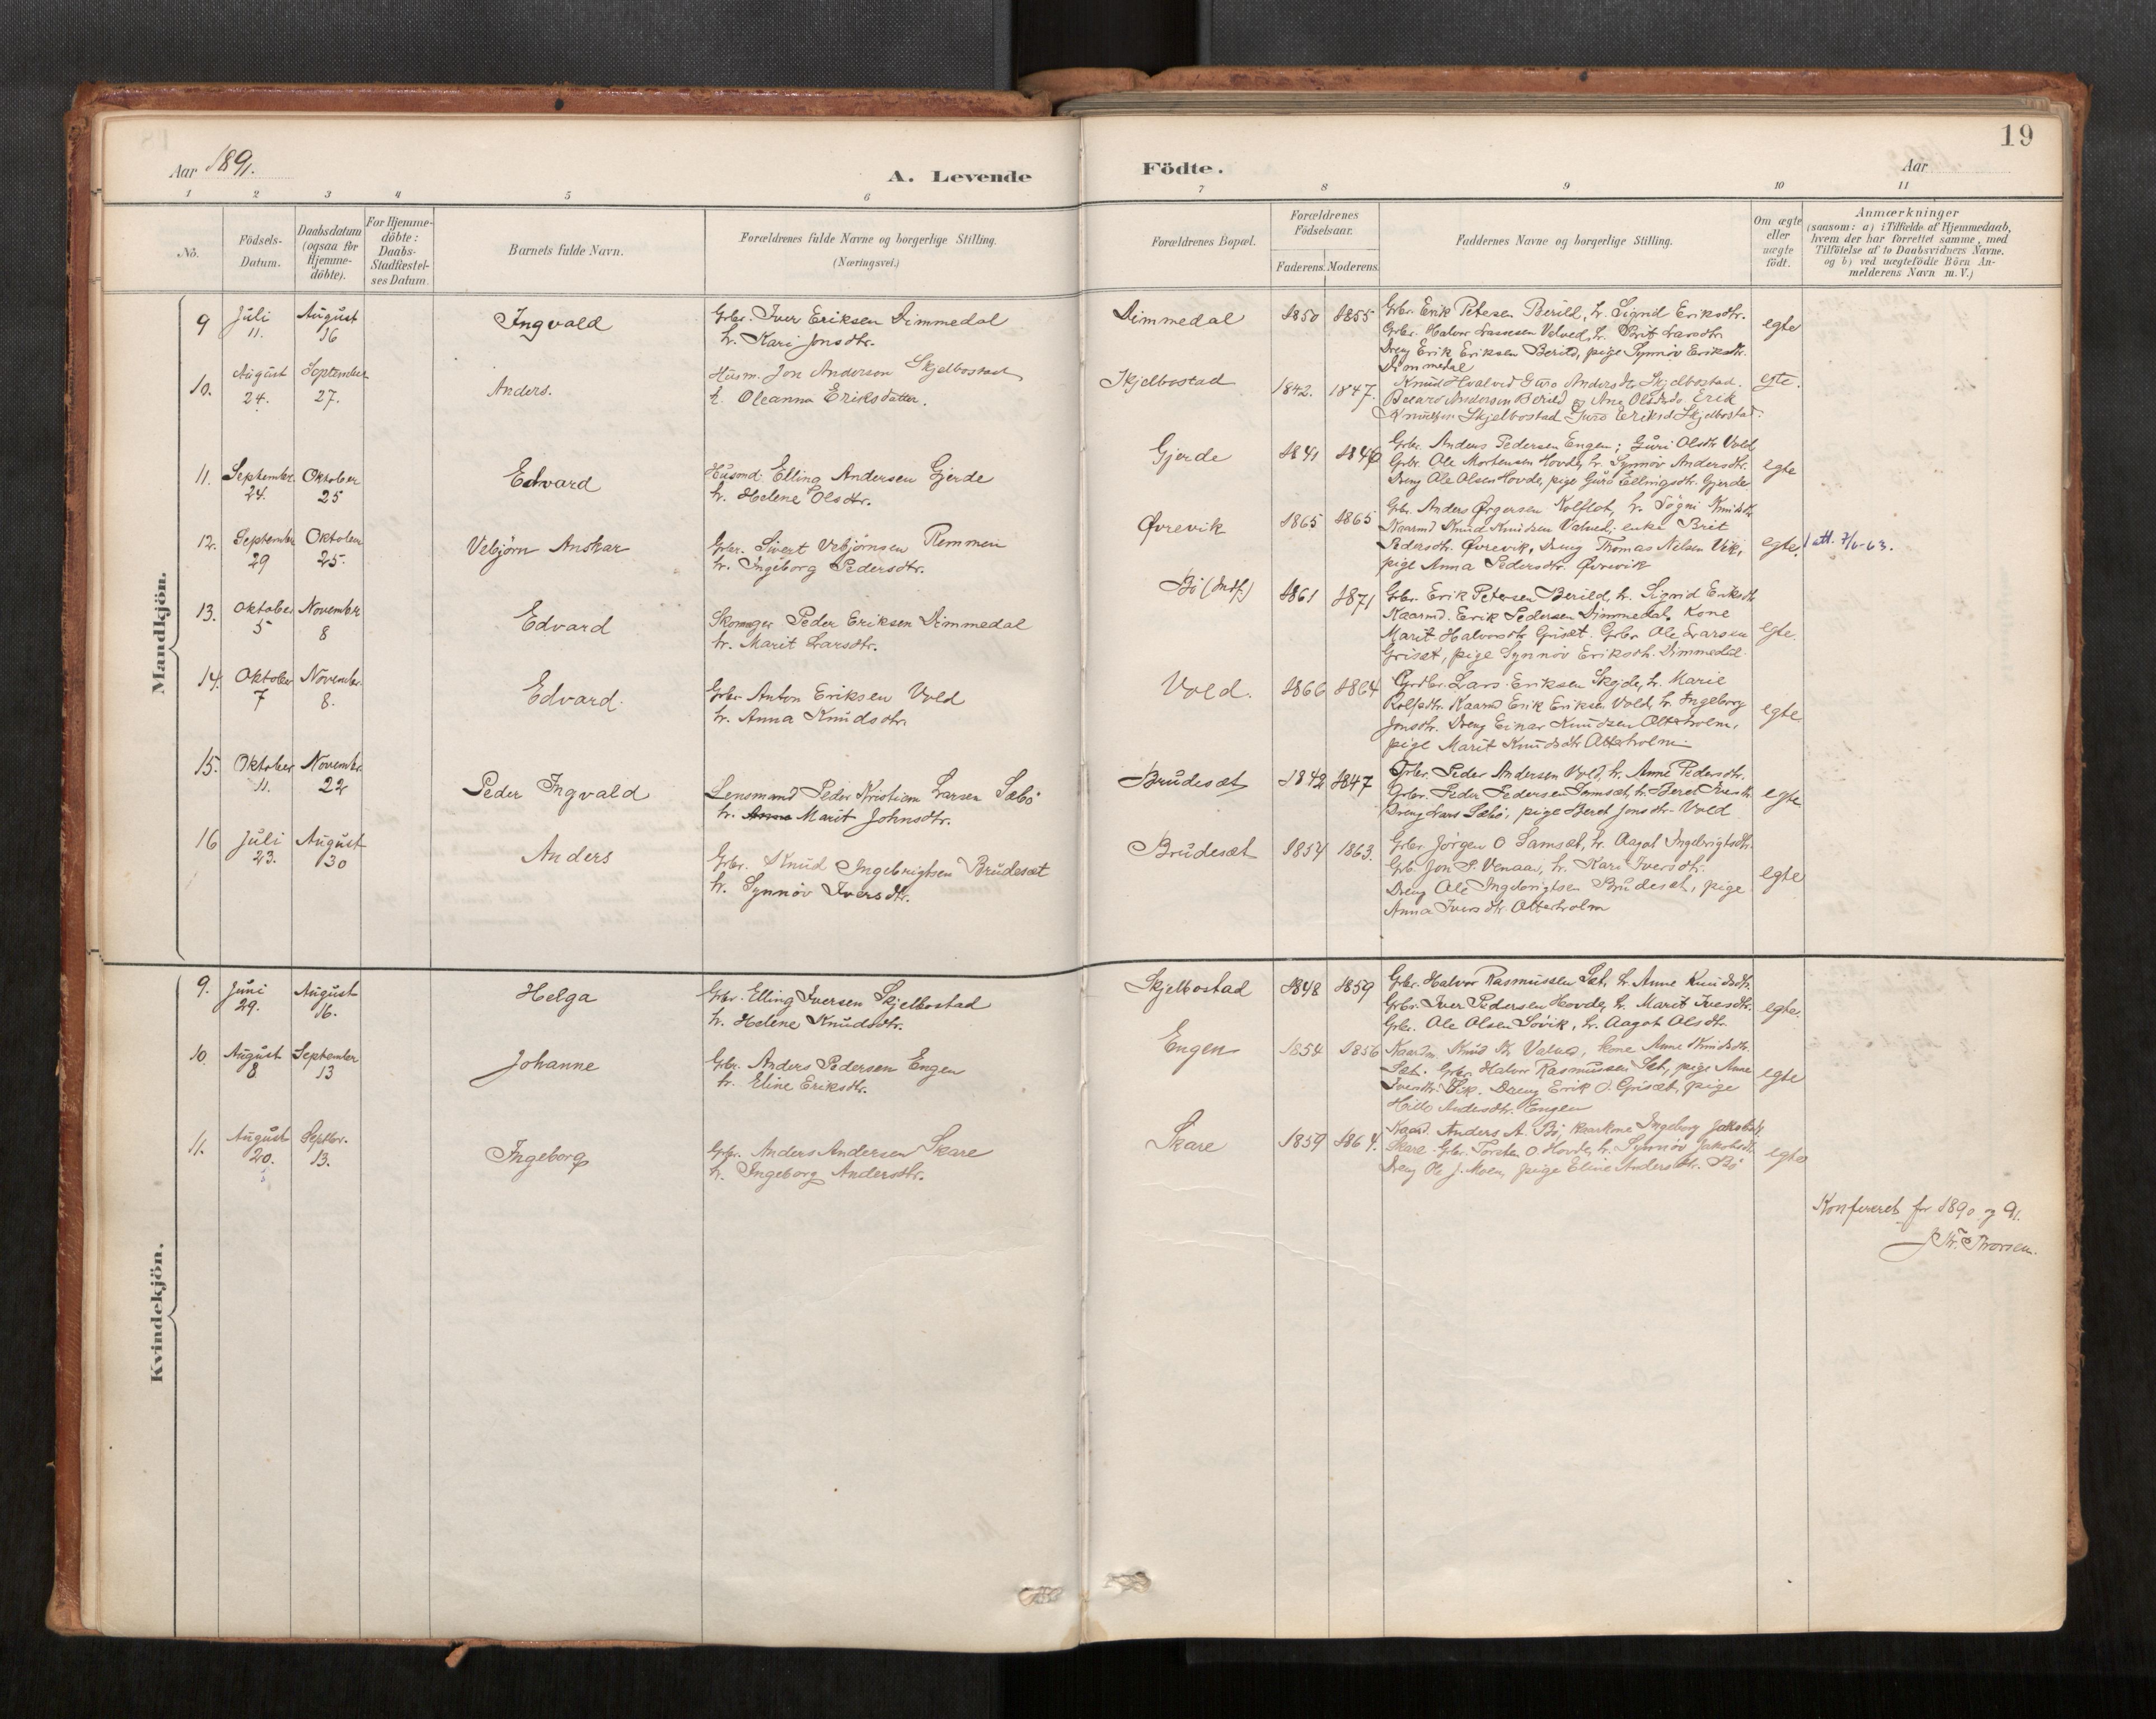 19
Aar 1891.
A. Levende Födte.
Aar
1 2 3 4 5 6 7 8 9 10 11
Nô.
Födsels-
Datum.
Daabsdatum
(ogsaa for
Hjemme-
döbte).
For Hjemme-
döbte:
Daabs-
Stadfæstel-
ses Datum.
Barnets fulde Navn.
Forældrenes fulde Navne og borgerlige Stilling.
(Næringsvei.)
Forældrenes Bopæl.
Forældrenes
Födselsaar.
Faderens. Moderens.
Faddernes Navne og borgerlige Stilling.
Om ægte
eller
uægte
födt.
Anmærkninger
(saasom: a) i Tilfælde af Hjemmedaab,
hvem der har forrettet samme, med
Tilföielse af to Daabsvidners Navne.
og b) ved uægtefödte Börn An-
melderens Navn m. V.)
Mandkjön.
9 Juli 11. August 16
Ingvald
Grbr. Iver Eriksen Dimmedal
h. Kari Jonsdtr.
Dimmedal 1850 1855
Grbr. Erik Petersen Berild, h. Sigrid Eriksdtr.
Grbr. Halvor Larsen Velved, h. Brit Larsdtr.
Dreng Erik Eriksen Berild, pige Synnöv Eriksdtr.
Dimmedal
egte
10. August 24. September 27.
Anders.
Husm. Jon Anderson Skjelbostad
h. Oleanna Eriksdatter.
Skjelbostad 1842. 1847.
Knud Hvalved Guro Andersdtr Skjelbostad.
Andersen Berild og Ane Olsdtr do. Erik
Knudsen Skjelbostad Guro Eriksd Skjelbostad.
egte.
11. September 24. Oktober 25
Edvard
Husmd. Elling Andersen Gjerde
h. Helene Olsdtr.
Gjerde 1841 1846
Grbr. Anders Pedersen Engen; Guri Olsdtr Vold
Grbr. Ole Mortensen Hovde, h. Synnöv Andersdtr.
Dreng Ole Olsen Hovde, pige Guro Ellingsdtr. Gjerde
egte
12. September 29 Oktober 25.
Vebjörn Anskar
Grbr. Sivert Vebjörnsen Remmen
h. Ingeborg Pedersdtr.
Øvrevik 1865 1865
Grbr. Anders Ørgersen Kolflot, h. Sögni Knudsdtr
Kaarmd Knud Knudsen Valved; enke Brit
Pedersdtr. Øvrevik, Dreng Thomas Nelsen Vik,
pige Anna Pedersdtr. Øvrevik
egte.
1 att. 7/6-63.
13. Oktober 5 November 8
Edvard
Skomager Peder Eriksen Dimmedal
h. Marit Larsdtr.
Bö (Indf.) 1861 1871
Grbr. Erik Petersen Berild, h. Sigrid Eriksdtr
Kaarmd. Erik Pedersen Dimmedal, Kone
Marit Halvorsdtr Griset. Grbr. Ole Larsen
Griset, pige Synnöv Eriksdtr. Dimmedal.
egte.
14. Oktober 7 November 8.
Edvard.
Grbr. Anton Eriksen Vold
h. Anna Knudsdtr.
Vold. 1866 1864
Grdbr. Lars Eriksen Skejde, h. Marie
Rolfsdtr. Kaarmd Erik Eriksen Vold, h. Ingeborg
Jonsdtr. Dreng Einar Knudsen Otterholm,
pige Marit Knudsdtr. Otterholm
egte
15. Oktober 11. November 22
Peder Ingvald
Lensmand Peder Kristian Larsen Sæbö
h. Marit Johnsdtr.
Brudesæt 1842 1847
Grbr. Peder Andersen Vold, h. Anne Pedersdtr.
Grbr. Peder Pedersen Samsæt, h. Beret Iversdtr
Dreng Lars Sæbö, pige Beret Jonsdtr. Vold
egte
16 Juli 23. August 30
Anders
Grbr. Knud Ingebrigtsen Brudesæt
h. Synnöv Iversdtr.
Brudesæt 1854 1863.
Grbr. Jörgen O Samsæt, h. Aagot Ingebrigtsdtr.
Grb. Jon P. Venaas, h. Kari Iversdtr.
Dreng Ole Ingebrigtsen Brudesæt, pige
Anna Iversdtr. Otterholm
egte
Kvindekjön.
9. Juni 29. August 16.
Helga
Grbr. Elling Iversen Skjelbostad
h. Helene Knudsdtr.
Skjelbostad 1848 1859
Grbr. Halvor Rasmussen Sæt, h. Anne Knudsdtr.
Grbr. Iver Pedersen Hovde, h. Marit Iversdtr.
Grbr. Ole Olsen Sövik, h. Aagot Olsdtr.
egte.
10. August 8. September 13
Johanne
Grbr. Anders Pedersen Engen
h. Eline Eriksdtr.
Engen 1854 1856
Kaarm. Knud Kn Valved, kone Anne Knudsdtr.
Sæt. Grbr Halvor Rasmussen Sæt, pige Anne
Iversdtr. Vik. Dreng Erik O. Grisæt, pige
Andersdtr. Engen
egte
11. August 20. Septbr. 13.
Ingeborg
Grbr. Anders Andersen Skare
h. Ingeborg Andersdtr.
Skare 1859 1864.
Kaard. Anders A. Bö, kaarkone Ingeborg Jakobsdtr.
Skare. Grbr. Torsten O. Hovde, h. Synnöv Jakobsdtr
Dreng Ole J. Moen, pige Eline Andersdtr. Bö
egte
Konfereret for 1890 og 91.